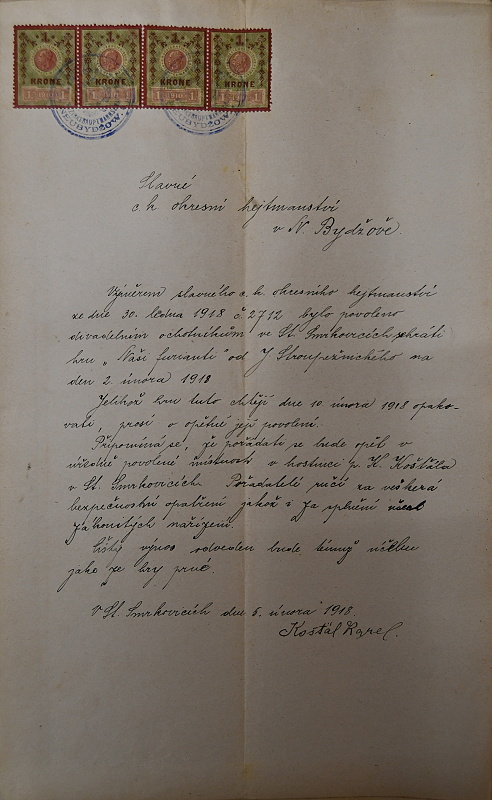 1 1 1 1
KRONE KRONE KRONE KRONE
1 1 1 1 1 1 1 1
NEUBYDŽOW. NEUBYDŽOW.
Slavné
c. k. okresní hejtmanství
v N. Bydžově.
Výnosem slavného c. k. okresního hejtmanství
ze dne 30. ledna 1918 č. 2712 bylo povoleno
divadelním ochotníkům ve St. Smrkovicích sehráti
hru „Naši furianti" od J Stroupežnického na
den 2. února 1918
Jelikož hru tuto chtějí dne 10. února 1918 opako-
vati, prosí o opětné její povolení.
Připomíná se, že pořádati se bude opět v
úředně povolené místnosti v hostinci p. K. Košťála
v St. Smrkovicích. Pořadatelé ručí za veškerá
bezpečnostní opatření jakož i za splnění všech
zákonitých nařízení.
Čistý výnos odveden bude témuž účelu
jako ze hry prvé.
V St. Smrkovicích dne 5. února 1918.
Košťál Karel.